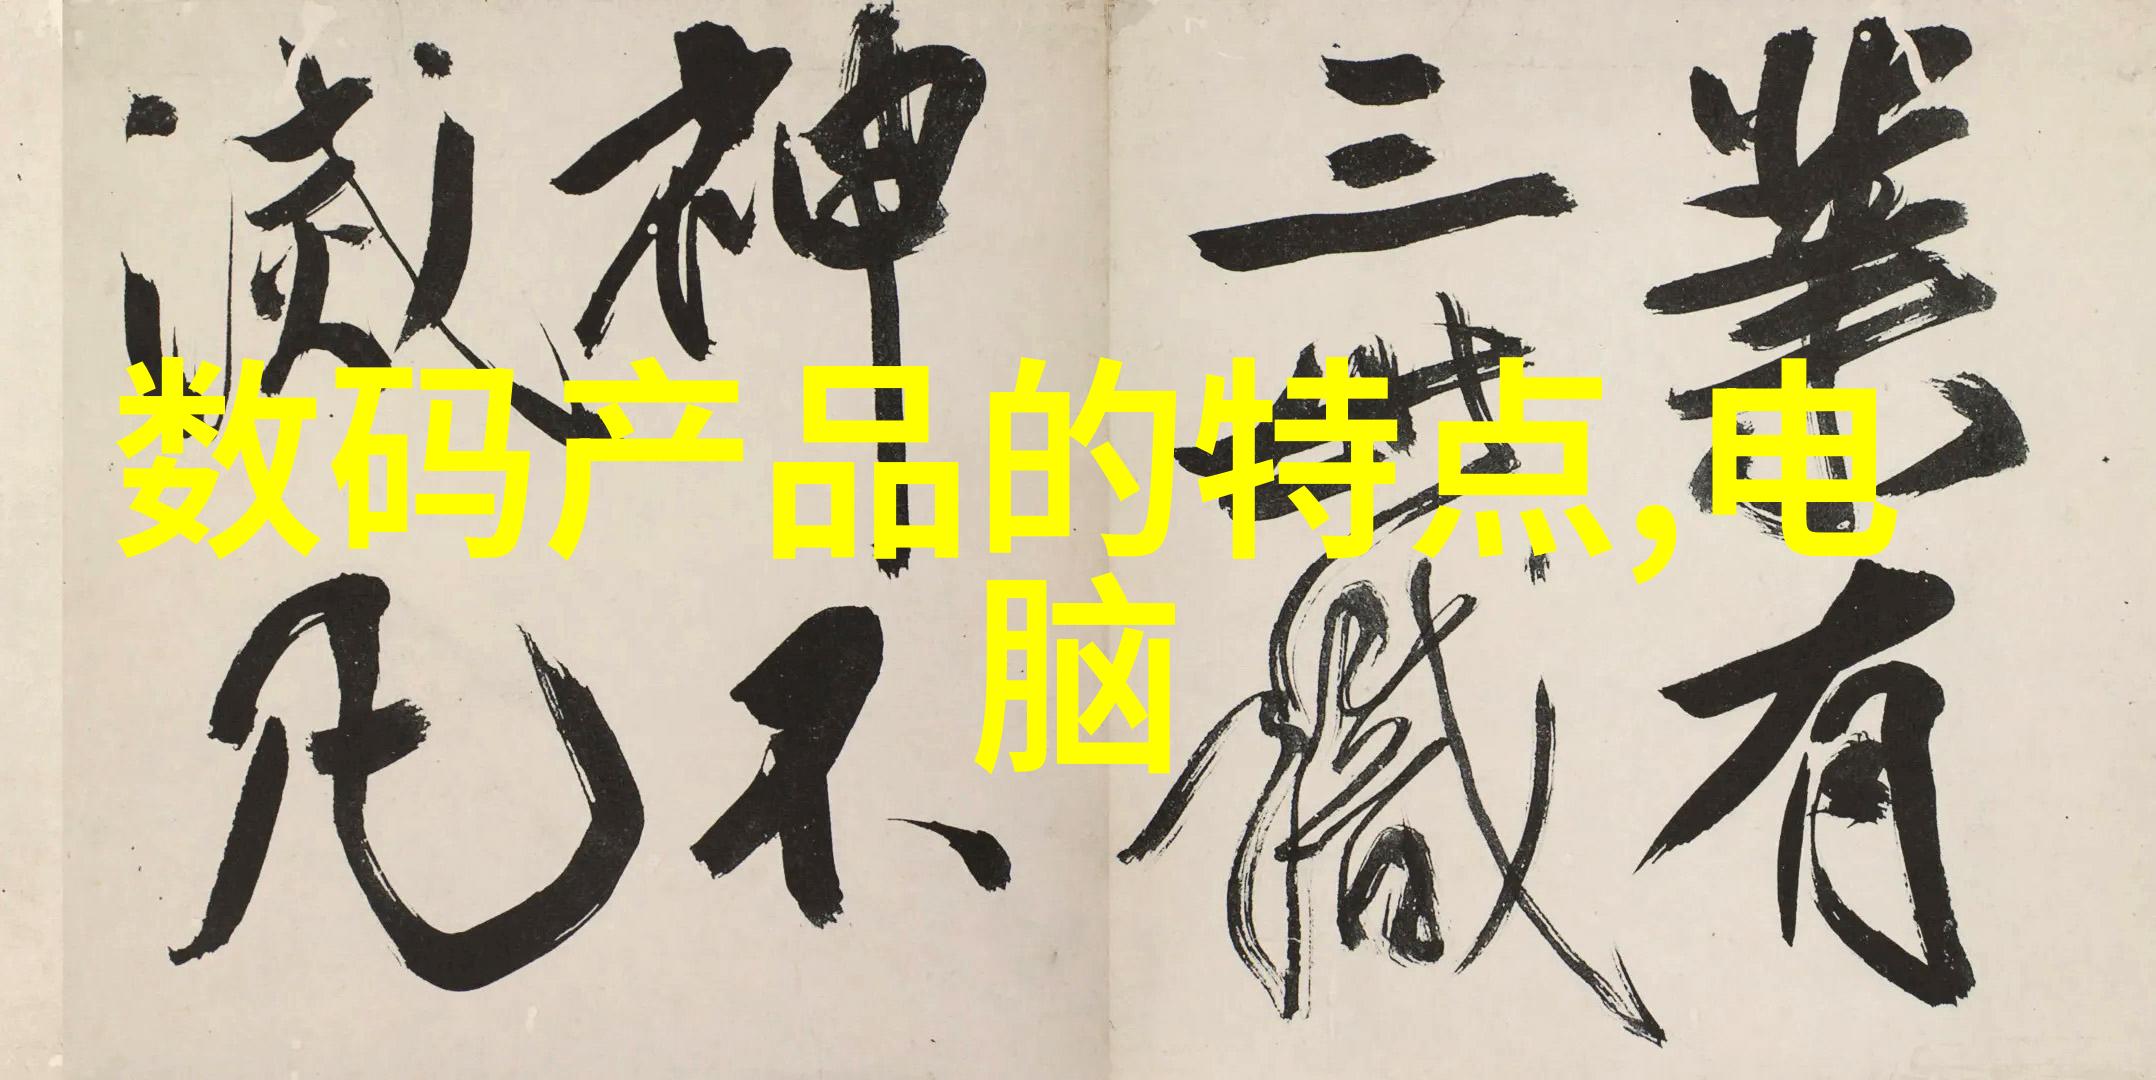 数码产品的特点,电
脑
業有
三
神不
滅凡